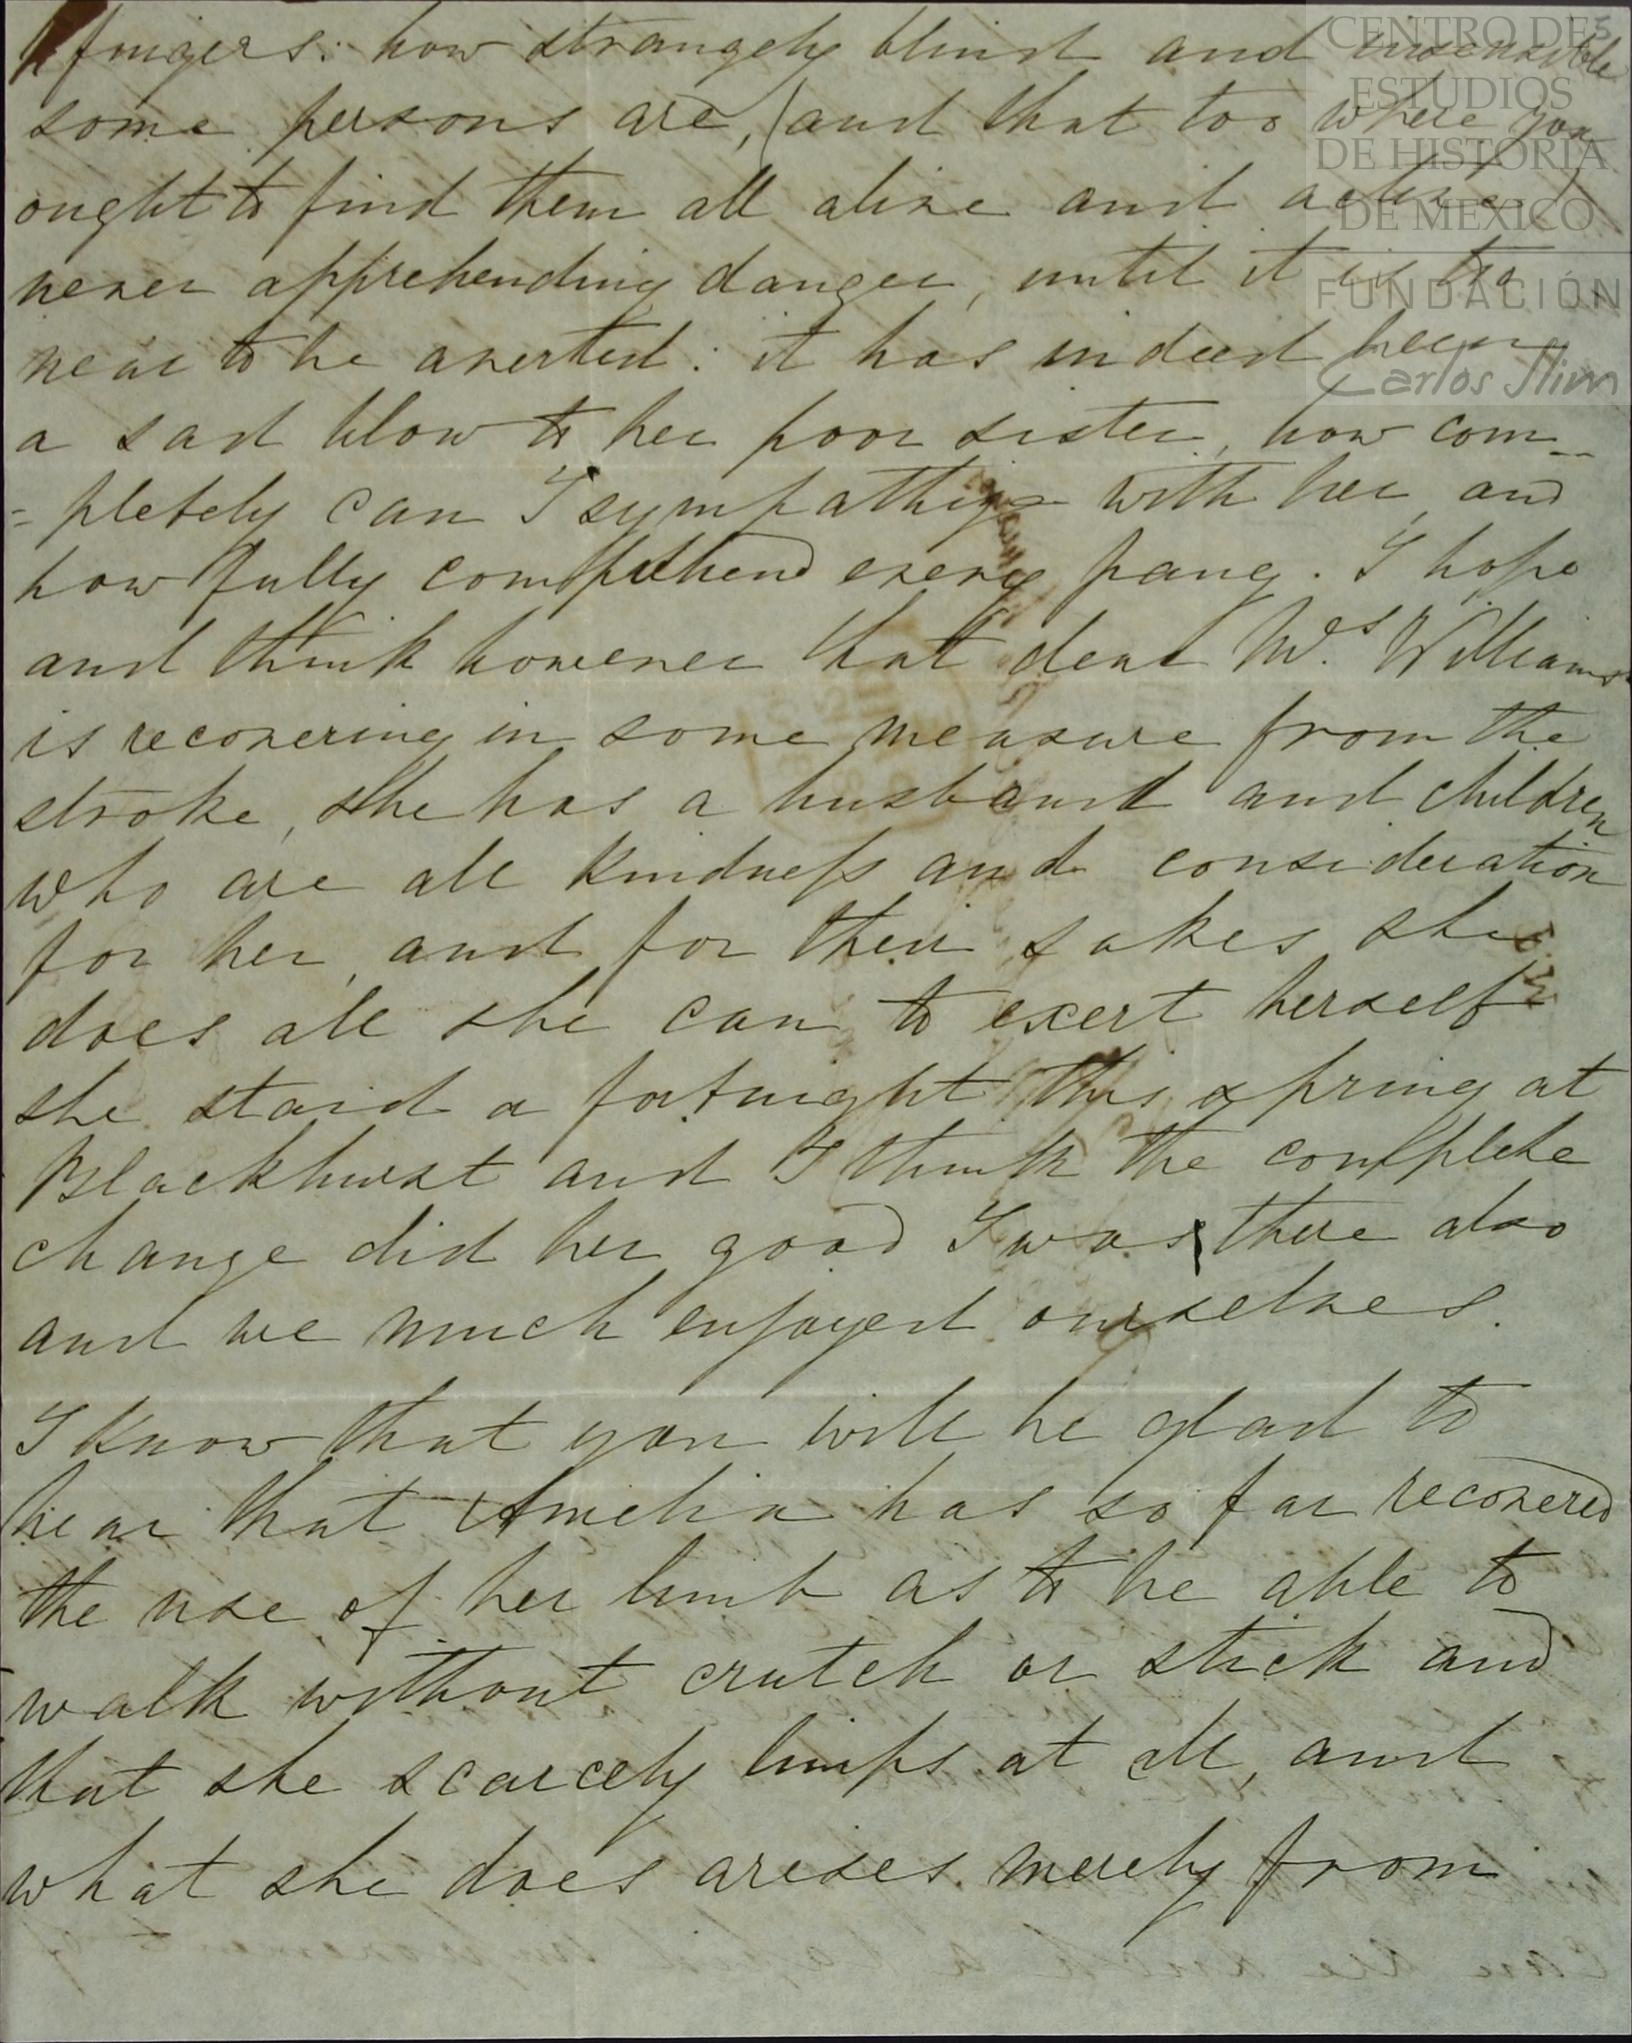 fingers: how strangely blind and insensible
some persons are, (and that too where you
ought to find them all alive and active)
never apprehending danger, until it is too
near to be averted: it has indeed been
a sad blow to her poor sister, how com--
=pletely can I sympathize with her, and
how fully comprehend every pang. I hope
and think however that dear Mrs. Williams
is recovering in some measure from the
stroke, she has a husband and children
who are all kindness and consideration
for her, and for their sakes she
does all she can to exert herself
she staid a fortnight this spring at
Blackhurst and I think the complete
change did her good I was there also
and we much enjoyed ourselves.
I know that you will be glad to
hear that Amelia has so far recovered
the use of her limb as to be able to
walk without crutch or stick and
that she scarcely limps at all, and
what she does arises merely from
CENTRO DE
ESTUDIOS
DE HISTORIA
DE MEXICO
FUNDACIÓN
Carlos Slim
5